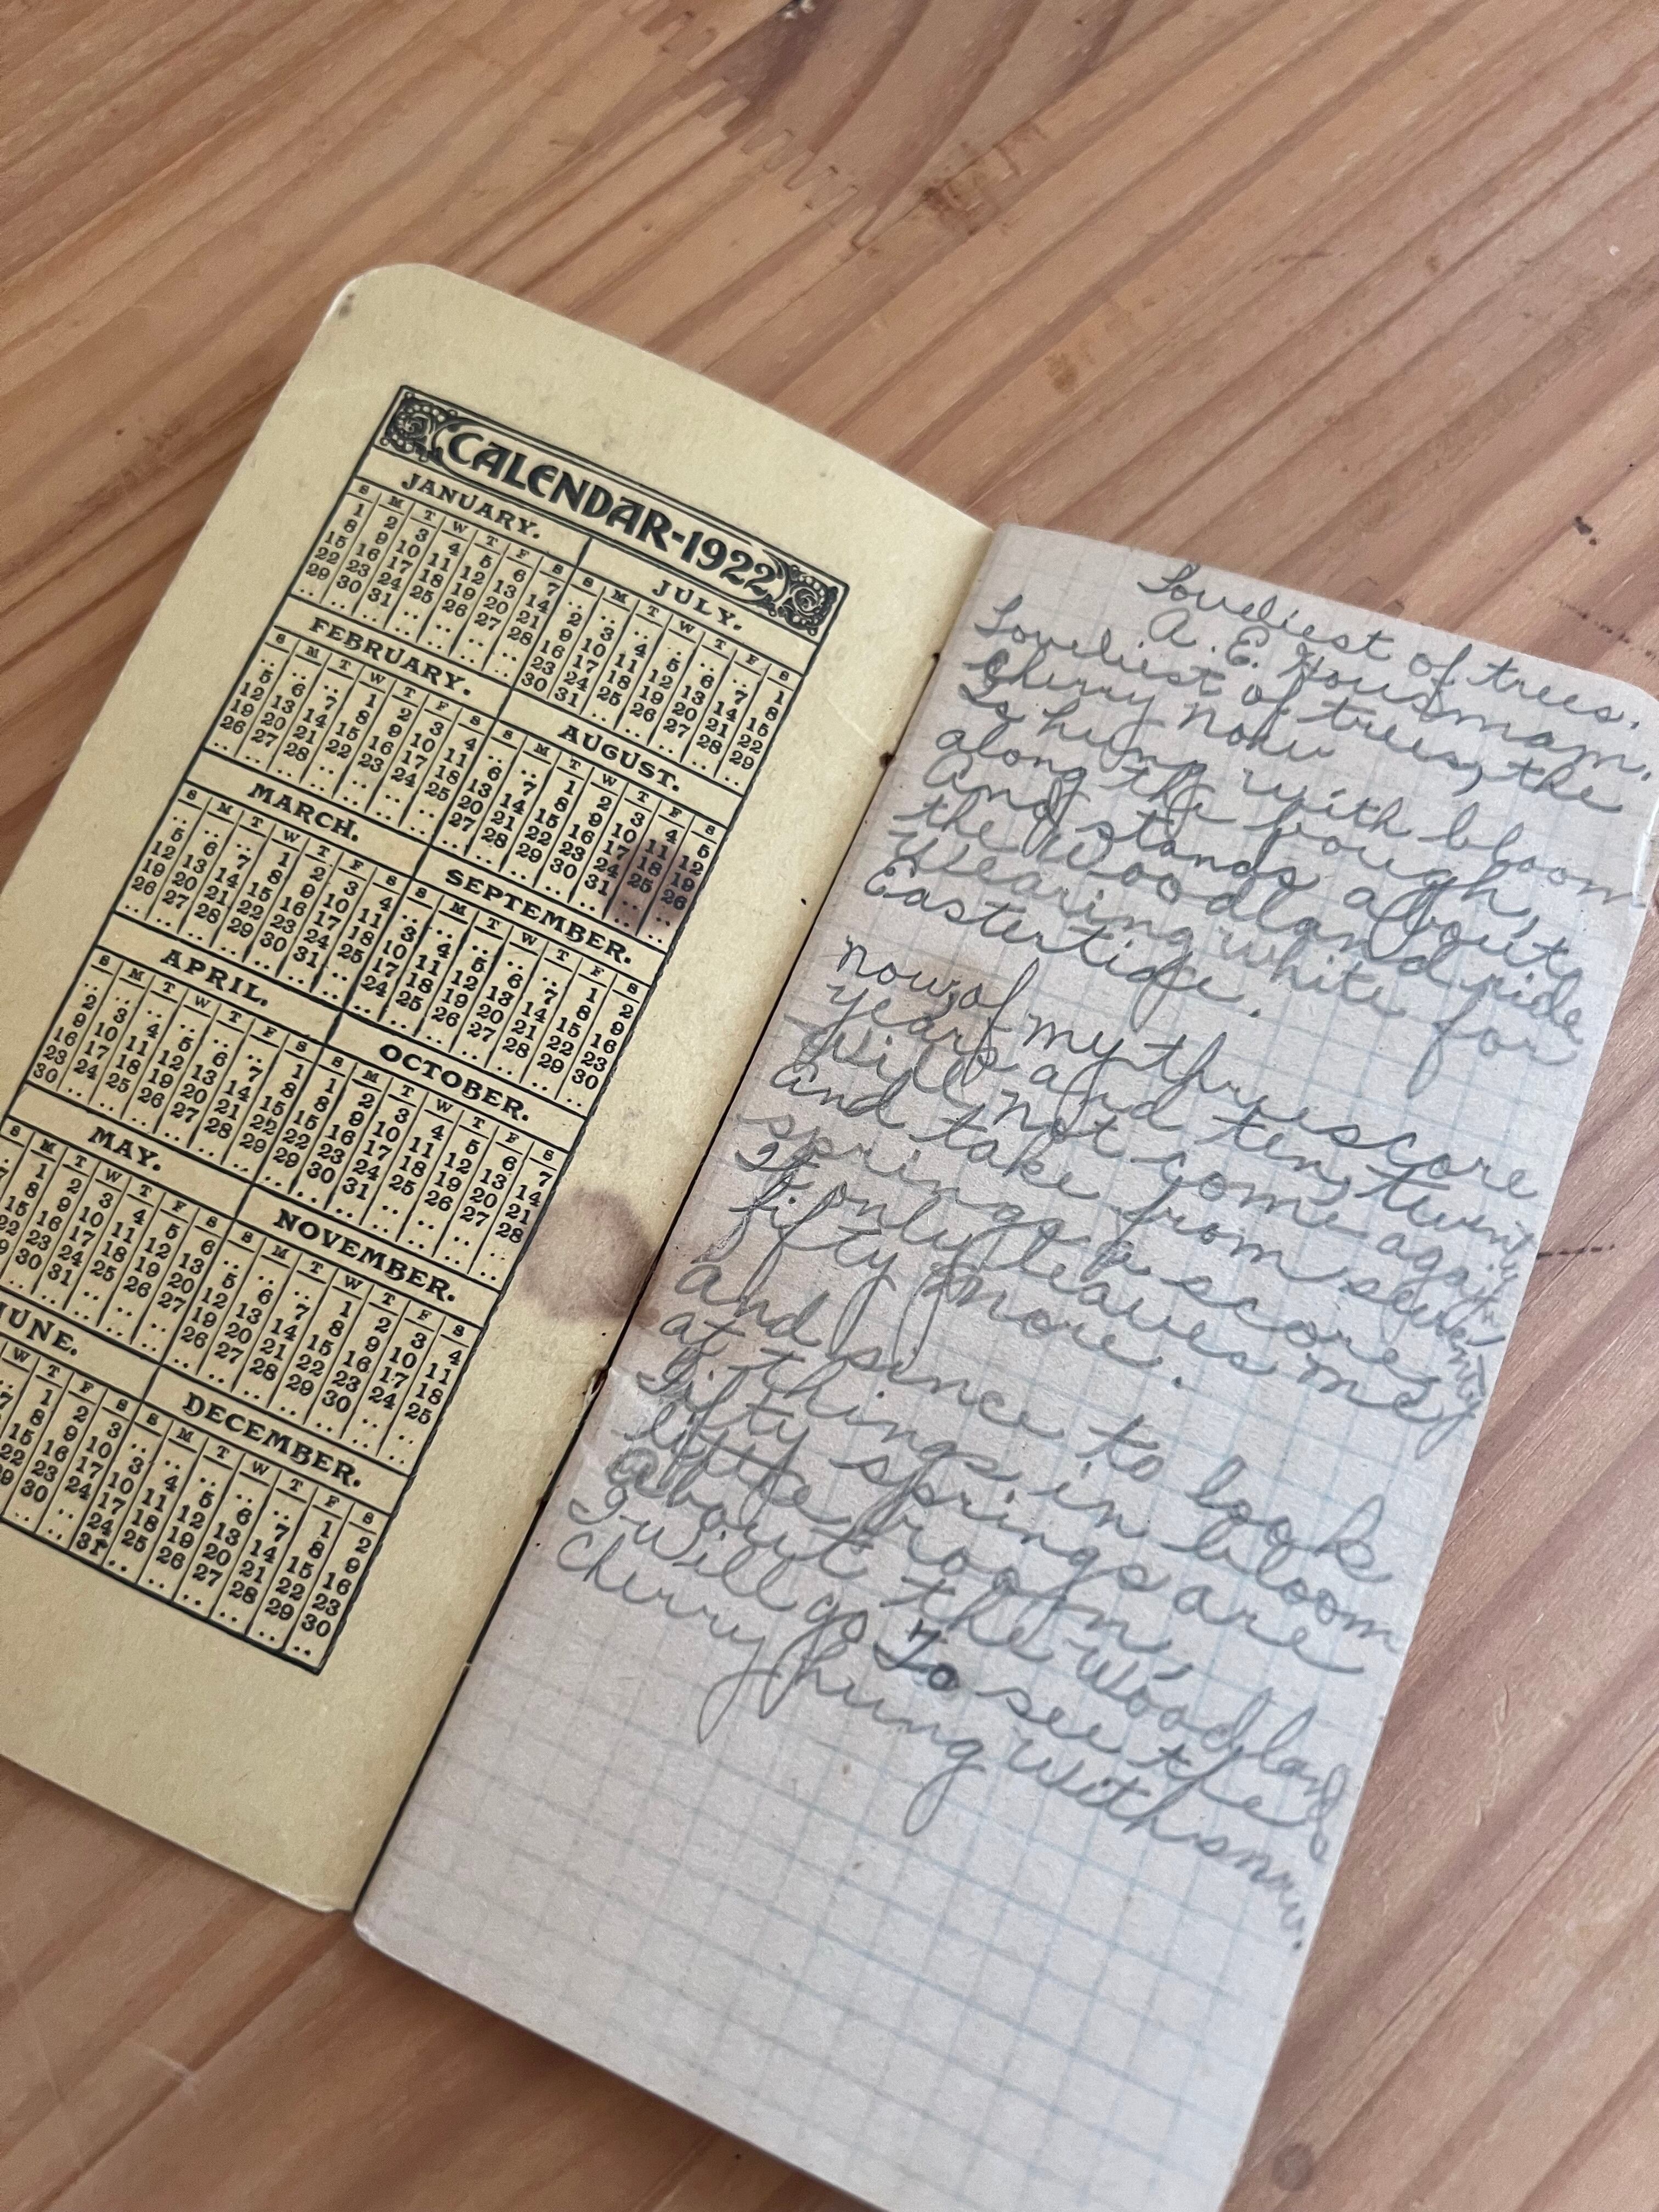 CALENDAR-1922
JANUARY.
S M T W T F S
1 2 3 4 5 6 7
8 9 10 11 12 13 14
15 16 17 18 19 20 21
22 23 24 25 26 27 28
29 30 31 .. .. .. ..
FEBRUARY.
S M T W T F S
.. .. .. 1 2 3 4
5 6 7 8 9 10 11
12 13 14 15 16 17 18
19 20 21 22 23 24 25
26 27 28 .. .. .. ..
MARCH.
S M T W T F S
.. .. .. 1 2 3 4
5 6 7 8 9 10 11
12 13 14 15 16 17 18
19 20 21 22 23 24 25
26 27 28 29 30 31 ..
APRIL.
S M T W T F S
.. .. .. .. .. .. 1
2 3 4 5 6 7 8
9 10 11 12 13 14 15
16 17 18 19 20 21 22
23 24 25 26 27 28 29
30 .. .. .. .. .. ..
MAY.
S M T W T F S
1 2 3 4 5 6
7 8 9 10 11 12 13
15 16 17 18 19 20
22 23 24 25 26 27
30 31 .. .. ..
UNE.
W T F S
1 2 3
7 8 9 10
15 16 17
22 23 24
30 ..
JULY.
S M T W T F S
.. .. .. .. .. .. 1
2 3 4 5 6 7 8
9 10 11 12 13 14 15
16 17 18 19 20 21 22
23 24 25 26 27 28 29
30 31 .. .. .. .. ..
AUGUST.
S M T W T F S
.. .. 1 2 3 4 5
6 7 8 9 10 11 12
13 14 15 16 17 18 19
20 21 22 23 24 25 26
27 28 29 30 31 .. ..
SEPTEMBER.
S M T W T F S
.. .. .. .. .. 1 2
3 4 5 6 7 8 9
10 11 12 13 14 15 16
17 18 19 20 21 22 23
24 25 26 27 28 29 30
OCTOBER.
S M T W T F S
1 2 3 4 5 6 7
8 9 10 11 12 13 14
15 16 17 18 19 20 21
22 23 24 25 26 27 28
29 30 31 .. .. .. ..
NOVEMBER.
S M T W T F S
.. .. .. 1 2 3 4
5 6 7 8 9 10 11
12 13 14 15 16 17 18
19 20 21 22 23 24 25
26 27 28 29 30 .. ..
DECEMBER.
S M T W T F S
.. .. .. .. .. 1 2
3 4 5 6 7 8 9
10 11 12 13 14 15 16
17 18 19 20 21 22 23
24 25 26 27 28 29 30
31 .. .. .. .. .. ..
Loveliest of trees.
A. E. Housmam.
Loveliest of trees, the
Cherry now
Is hung with bloom
along the bough,
And stands about
the woodland ride
Wearing white for
Eastertide.
now, of my threescore
years and ten,
Twenty
Will not come again
And take from seventy
springs a score,
It only leaves me
fifty more.
And since to look
at things in bloom
Fifty springs are
little room,
About the woodland
I will go
To see the
Cherry hung with snow.